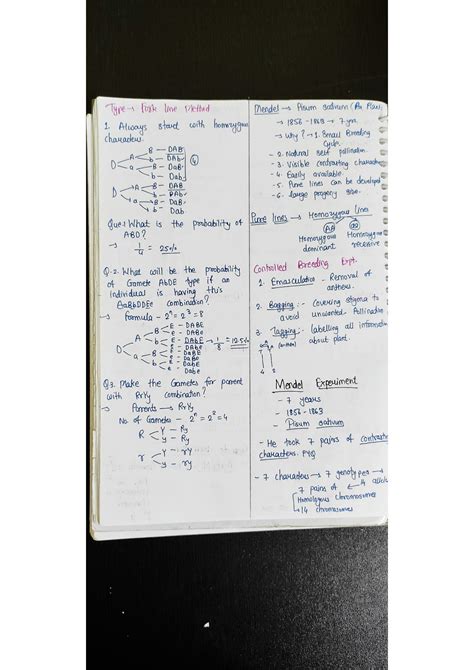 Type → Fork Line Method
1. Always start with homozygous
characters.
B – DAB
A
b – DAb
D
B – DaB
a
b – Dab
B – DAB
A
b – DAb
D
B – DaB
a
b – Dab
Que:1 What is the probability of
ABD?
→ 1/4 = 25%
Q.2. What will be the probability
of Gamete AbDE type if an
individual is having this
GaBbDDEe combination?
→ formula – 2ⁿ = 2³ = 8
E – DABE
B
e – DABe
A
b
E – DAbE → 1/8 = 12.5%
e – DAbe
D
E – DaBE
B
e – DaBe
a
b
E – DabE
e – Dabe
Q3. Make the Gametes for parent
with RrYy combination?
→ Parents → RrYy
No of Gametes – 2ⁿ = 2² = 4
Y – Ry
R
y – Ry
Y – rY
r
y – ry
Mendel → Pisum sativum (
→ 1856 - 1863 → 7 yrs.
→ Why? → 1. Small Breeding
Cycle.
- 2. Natural self pollination.
- 3. Visible contrasting characters
- 4. Easily available.
- 5. Pure lines can be developed
- 6. large progeny size.
Pure lines → Homozygous lines
AA
aa
Homozygous Homozygous
dominant recessive
Controlled Breeding Expt.
1. Emasculation – Removal of
anthers.
2. Bagging – covering stigma to
avoid unwanted Pollination
3. Tagging – labelling all information
about plant.
Mendel Experiment
– 7 years
– 1856 - 1863
– Pisum sativum
– He took 7 pairs of contrasting
characters. PYQ
– 7 characters → 7 genotypes →
7 pairs of
Homologous chromosomes
→ 14 chromosomes